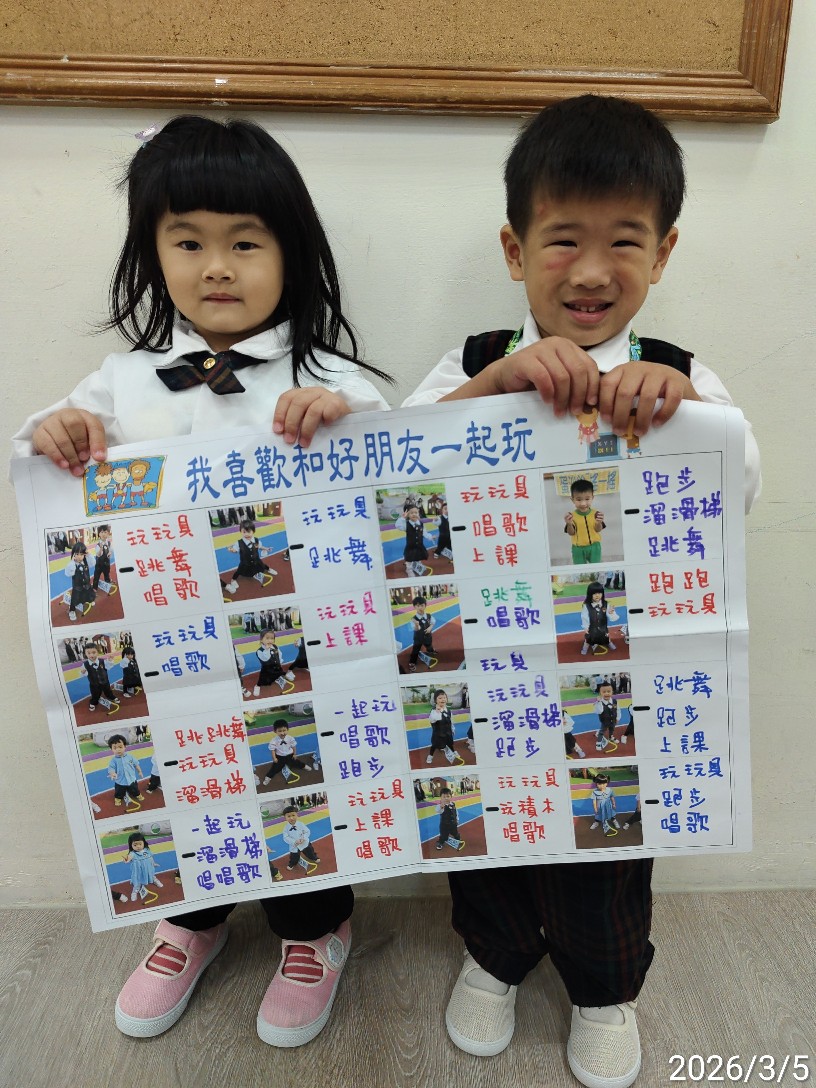 我喜歡和好朋友一起玩
玩玩具
跳舞
唱歌
玩玩具
跳舞
玩玩具
唱歌
上課
跑步
溜滑梯
跳舞
玩玩具
唱歌
玩玩具
上課
跳舞
唱歌
玩具
跑跑
玩玩具
跳跳舞
玩玩具
溜滑梯
一起玩
唱歌
跑步
玩玩具
溜滑梯
跑步
跳舞
跑步
上課
一起玩
溜滑梯
唱唱歌
玩玩具
上課
唱歌
玩玩具
玩積木
唱歌
玩玩具
跑步
唱歌
2026/3/5